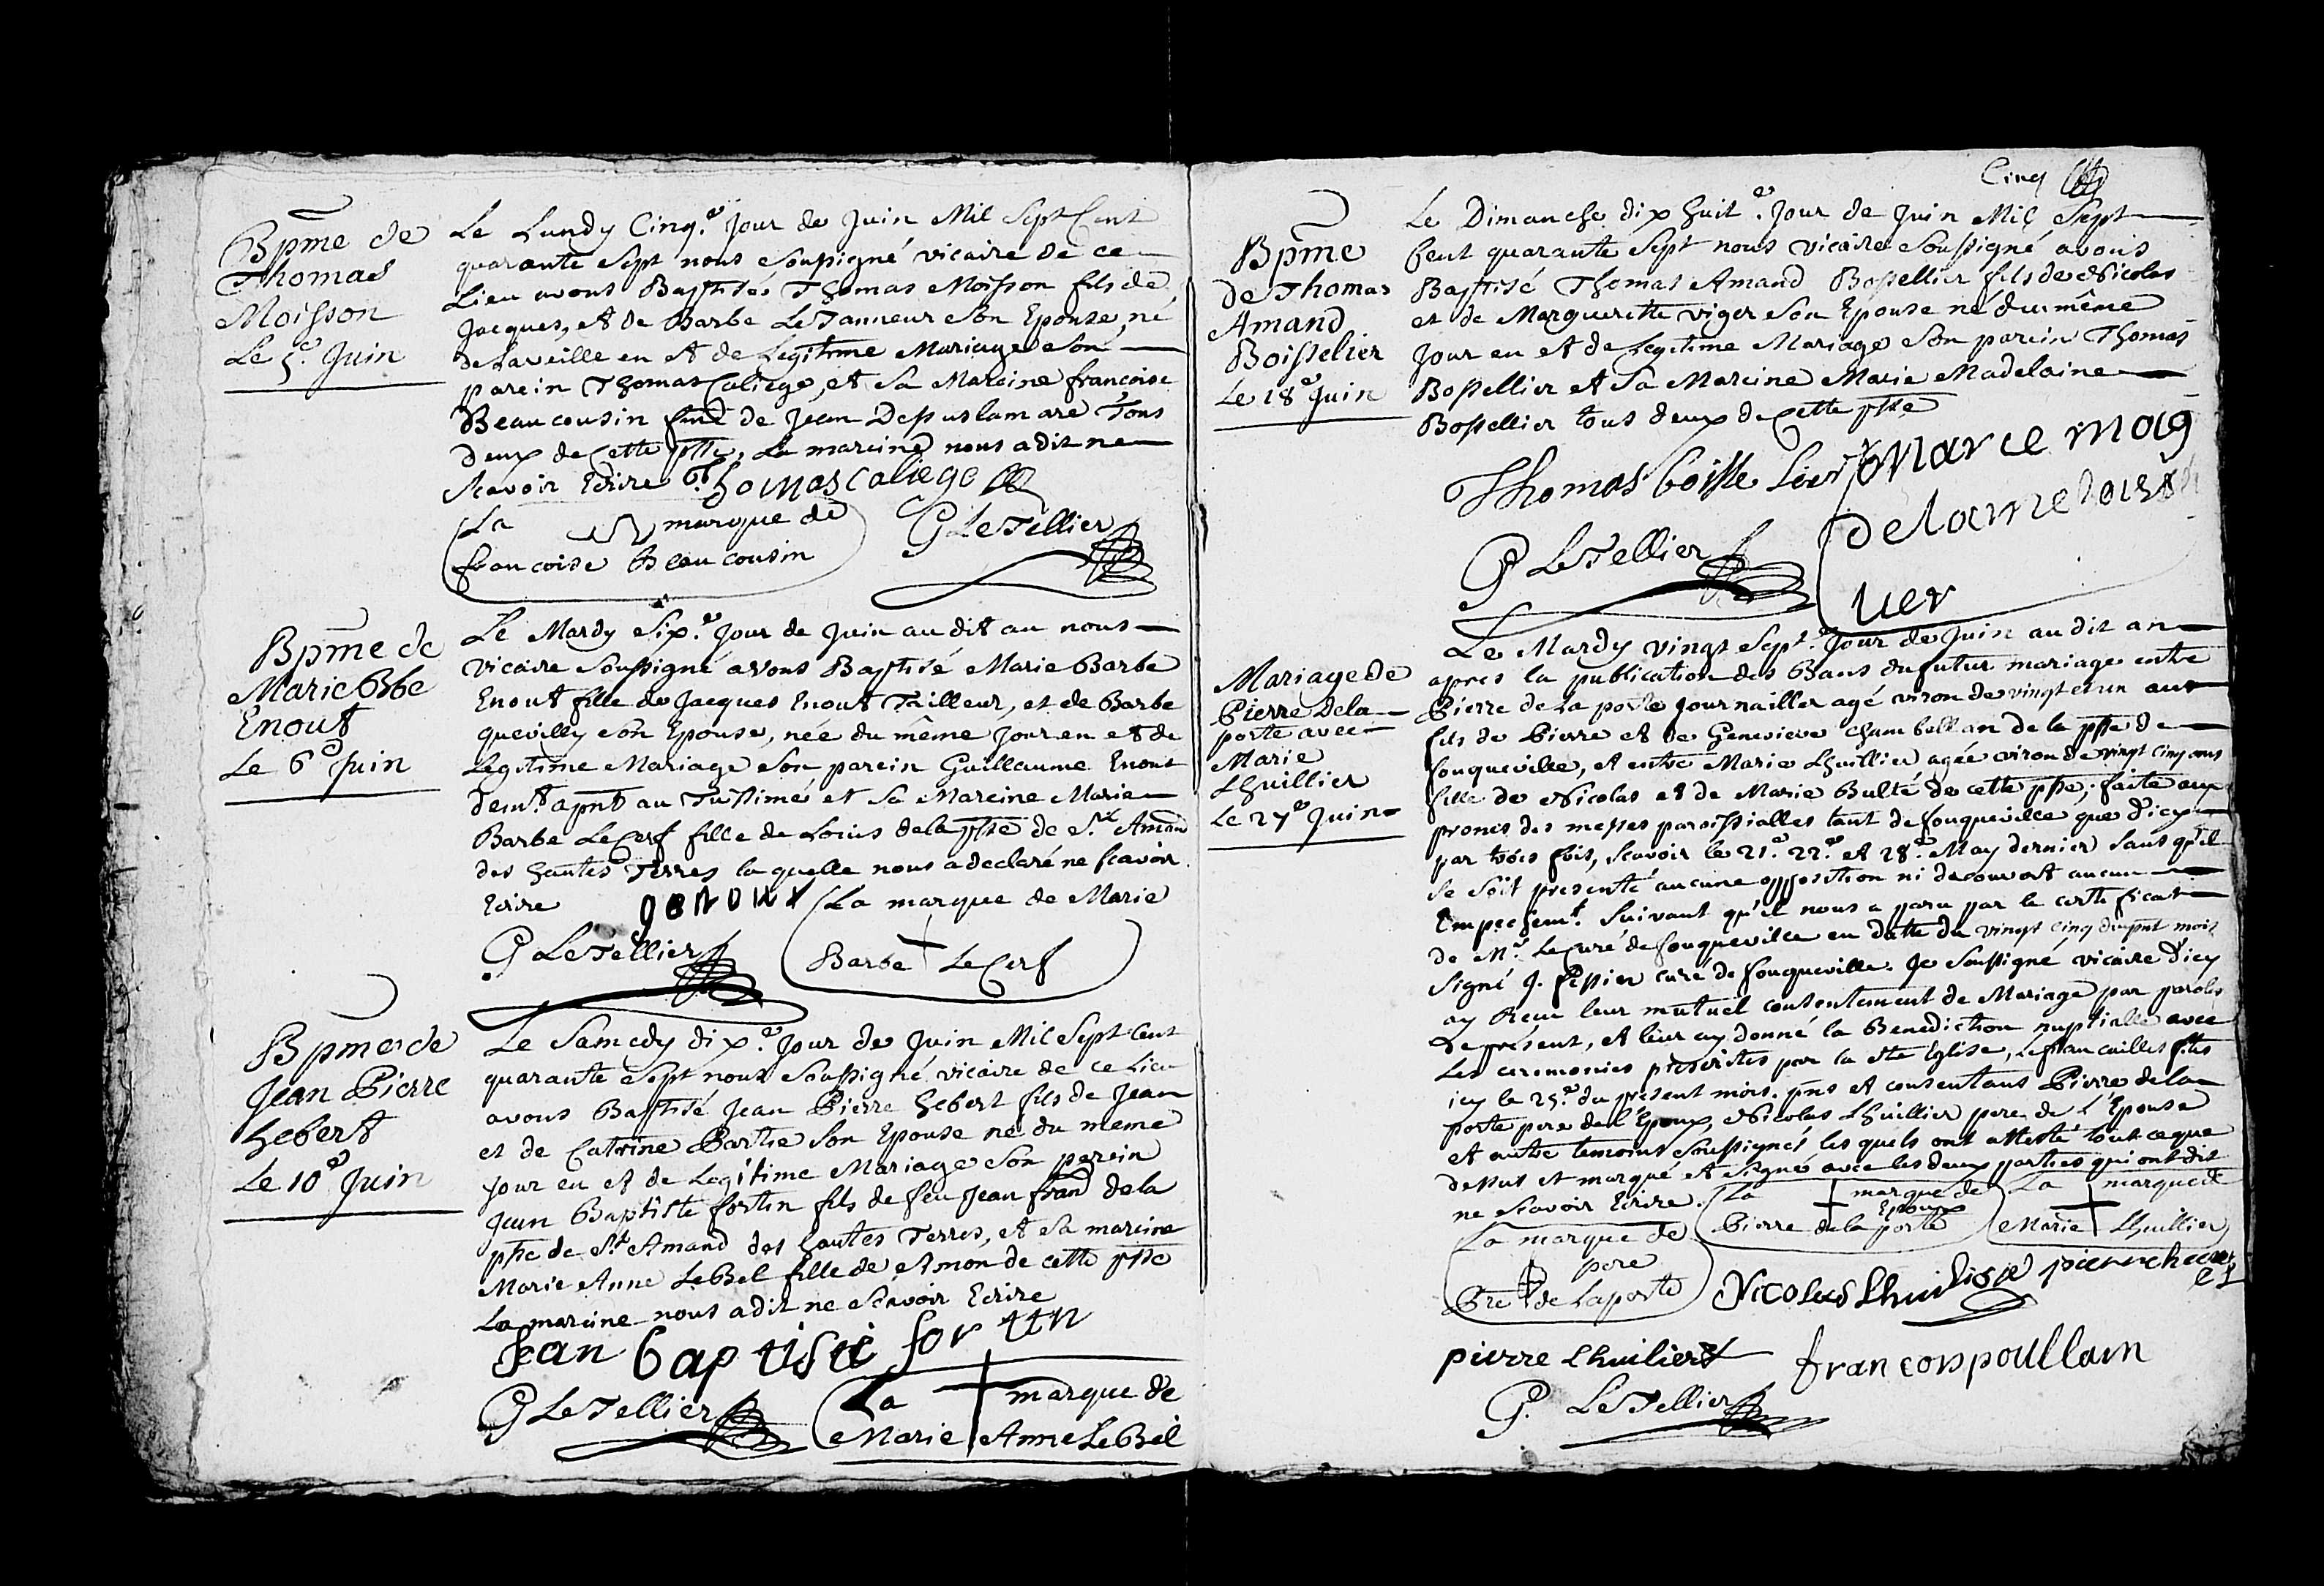 Bpme de
Thomas
Moisson
Le 5e Juin
Le Lundy Cinq.e Jour de Juin Mil Sept Cent
quarante Sept nous Soussigné vicaire de ce
Lieu avons Baptisé Thomas Moisson fils de
Jacques, et de Barbe LeTanneur Son Epouse, né
de Laveille en et de Legitime Mariage Son
parein Thomas Caliege, et Sa Mareine françoise
Beaucousin fme de Jean Depuslamare Tous
deux de Cette psse, La mareine nous a dit ne
Scavoir Ecrire Thomas Caliege
La marque de
françoise Beaucousin
G LeTellier
Bpme de
Marie Bbe
Enout
Le 6e Juin
Le Mardy Six.e Jour de Juin au dit an nous
Vicaire Soussigné avons Baptisé Marie Barbe
Enout fille de Jacques Enout Tailleur, et de Barbe
quevilly Son Epouse, née du même Jour en et de
Legitime Mariage Son parein Guillaume Enout
demt apnt au Tuitimé et Sa Mareine Marie
Barbe LeCerf fille de Louis de la psse de St Amand
des hautes Terres laquelle nous a declaré ne scavoir
Ecrire
La marque de Marie
Barbe LeCerf
G LeTellier
Bpme de
Jean Pierre
hebert
Le 10e Juin
Le Samedy dix.e Jour de Juin Mil Sept Cent
quarante Sept nous Soussigné vicaire de ce Lieu
avons Baptisé Jean Pierre hebert fils de Jean
et de Catrine Bartre Son Epouse né du meme
jour en et de Legitime Mariage Son parein
Jean Baptiste fortin fils de feu Jean frand de la
psse de St Amand des hautes Terres, et Sa mareine
Marie Anne LeBel fille de Simon de cette psse
La mareine nous a dit ne Scavoir Ecrire
Jean baptiste fortin
G LeTellier
La marque de
Marie Anne LeBel
Cinq
Bpme
de Thomas
Amand
Boisselier
Le 18e Juin
Le Dimanche dix huit.e Jour de Juin Mil Sept
Cent quarante Sept nous Vicaire Soussigné avons
Baptisé Thomas Amand Bossellier fils de Nicolas
et de Margueritte viger Son Epouse né du même
Jour en et de Legitime Mariage Son parein Thomas
Bossellier et Sa Mareine Marie Madelaine
Bossellier tous deux de Cette psse
Thomas boisse lier
Marie mag
delaine
G LeTellier
Mariage de
Pierre Dela
porte avec
Marie
Lhuillier
Le 27e Juin
Le Mardy vingt Sept.e Jour de Juin au dit an
apres la publication des Bans du futur mariage entre
Pierre de La porte Journaillier agé viron de vingt et un ans
fils de Pierre et de Genevieve Chambellan de la psse de
fouqueville, et entre Marie Lhuillier agée viron de vingt cinq ans
fille de Nicolas et de Marie Bulté de cette psse, faite aux
prones des messes paroissialles tant de fouqueville que d'icy
par trois fois, Scavoir le 21.e 22.e et 28.e May dernier Sans qu'il
Se Soit presenté aucune opposition ni decouvert aucun
Empechemt. Suivant qu'il nous a paru par le certificat
de Mr. Le Curé de fouqueville en datte du vingt cinq du pnt mois
Signé J. Pepier curé de fouqueville. Je Soussigné vicaire d'icy
ay Recu leur mutuel consentement de Mariage par paroles
de présent, et leur ay donné la Benediction nuptialle avec
Les ceremonies prescrites par la Ste Eglise, Les fiancailles fttes
icy le 25.e du présent mois. pns et consentans Pierre de la
porte pere de L'Epoux, Nicolas Lhuillier pere de L'Epouse
et autre temoins Soussignés les quels ont attesté tout ce que
dessus et marqué et Signé avec les deux parties qui ont dit
ne Scavoir Ecrire.
La marque de
Epoux
Pierre de la porte
La marque de
Marie Lhuillier
La marque de
pere
Pre de Laporte
Nicolas Lhuilier
pierre lhuilier
francois poullain
G. LeTellier